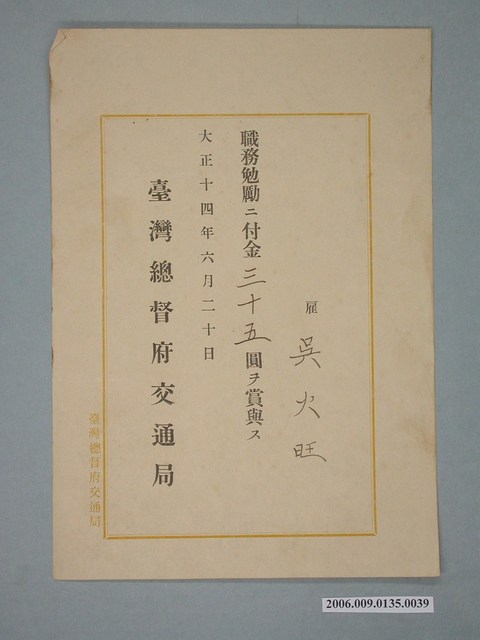 雇 吳火旺
職務勉勵ニ付金三十五圓ヲ賞與ス
大正十四年六月二十日
臺灣總督府交通局
臺灣總督府交通局
2006.009.0135.0039